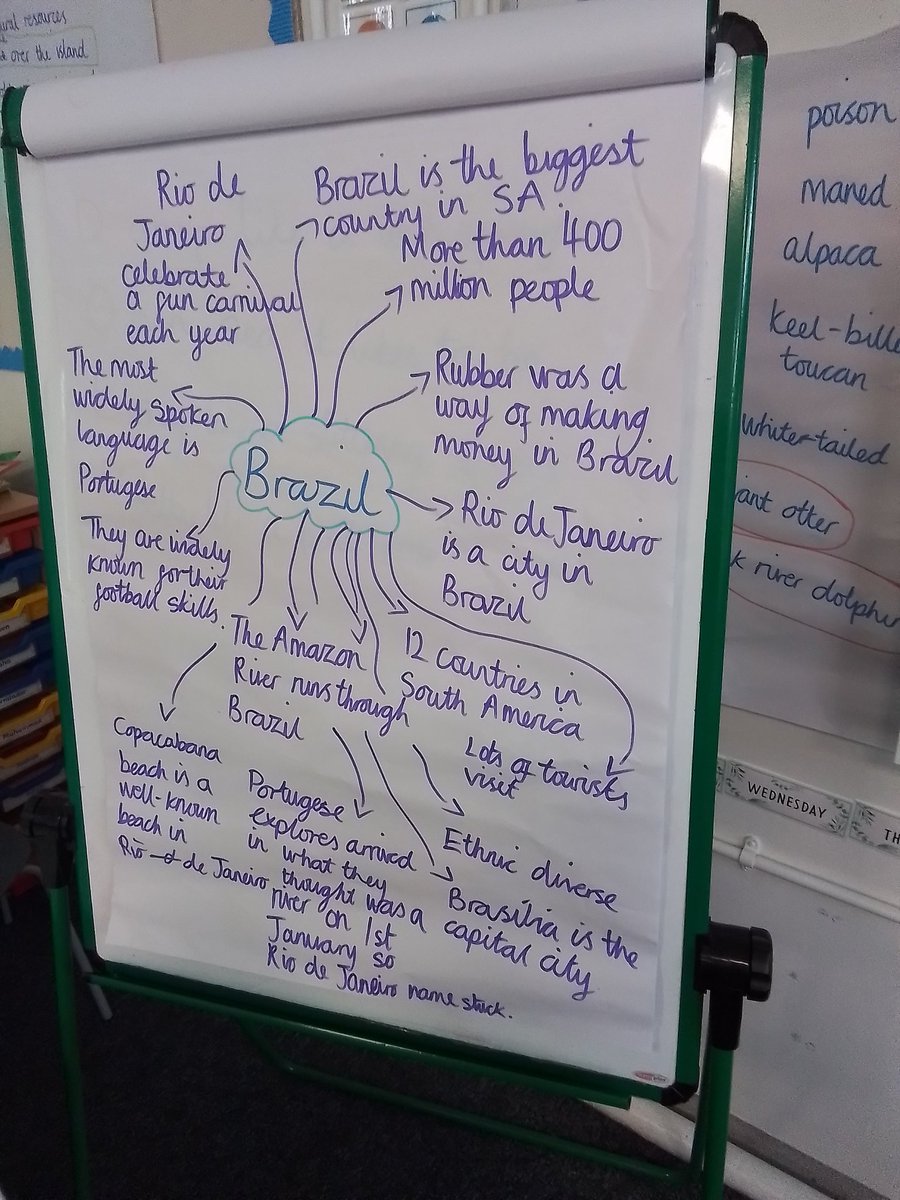 ural resources
over the island
Rio de
Janeiro
celebrate
a fun carnival
each year
Brazil is the biggest
country in SA.
More than 400
million people
The most
widely spoken
language is
Portugese
Rubber was a
way of making
money in Brazil
Brazil
Rio de Janeiro
is a city in
Brazil
They are widely
known for their
football skills.
The Amazon
River runs through
Brazil
12 countries in
South America
Lots of tourists
visit
Copacabana
beach is a
well-known
beach in
Rio de Janeiro
Portugese
explores arrived
in what they
thought was a
river on 1st
January so
Rio de Janeiro name stuck.
Ethnic diverse
Brasília is the
capital city
poison
maned
alpaca
keel-bille
toucan
white-tailed
iant otter
k river dolphin
WEDNESDAY
TH